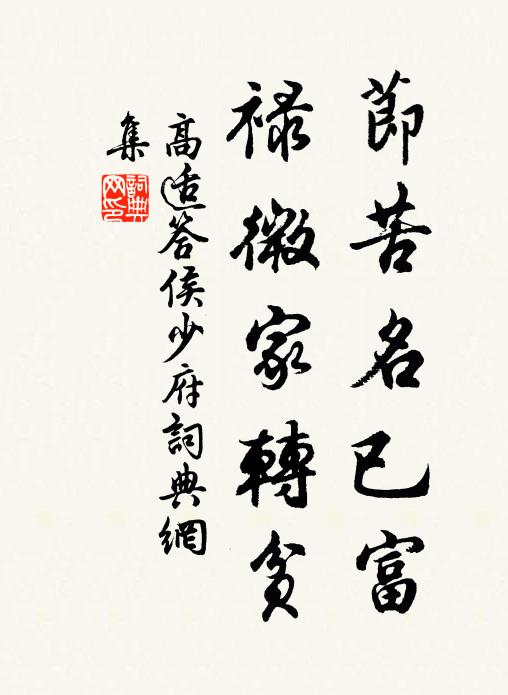 節苦名已富
祿微家轉貧
高适答侯少府詞典網
集
詞典
网印